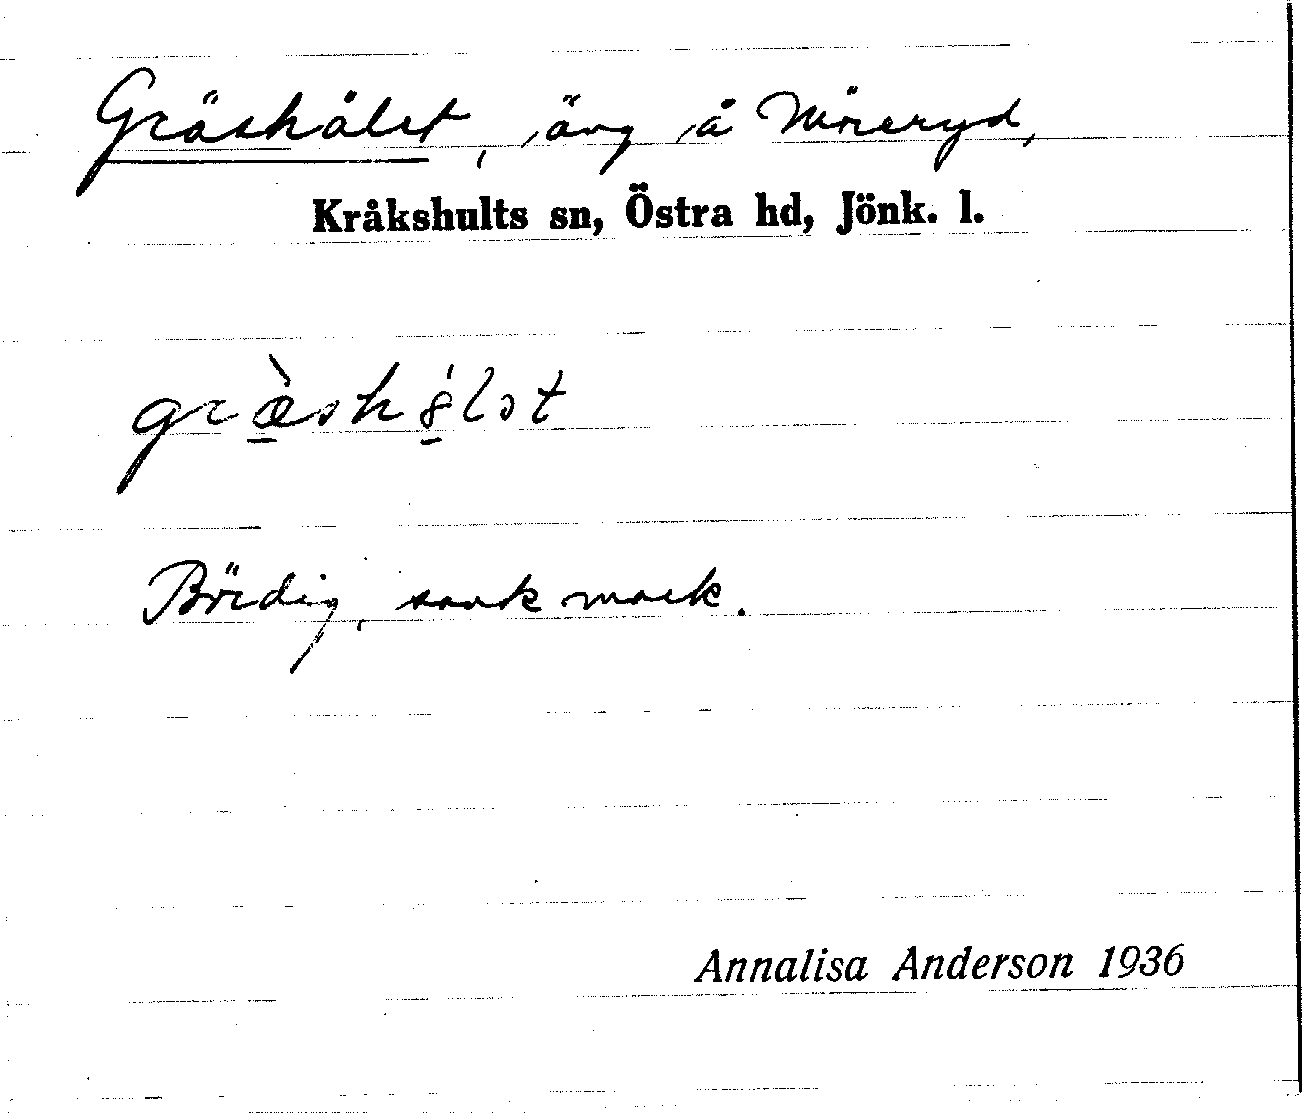 Gräshålet, äng å Möreryd,
Kråkshults sn, Östra hd, Jönk. l.
Bördig, sank mark.
Annalisa Anderson 1936